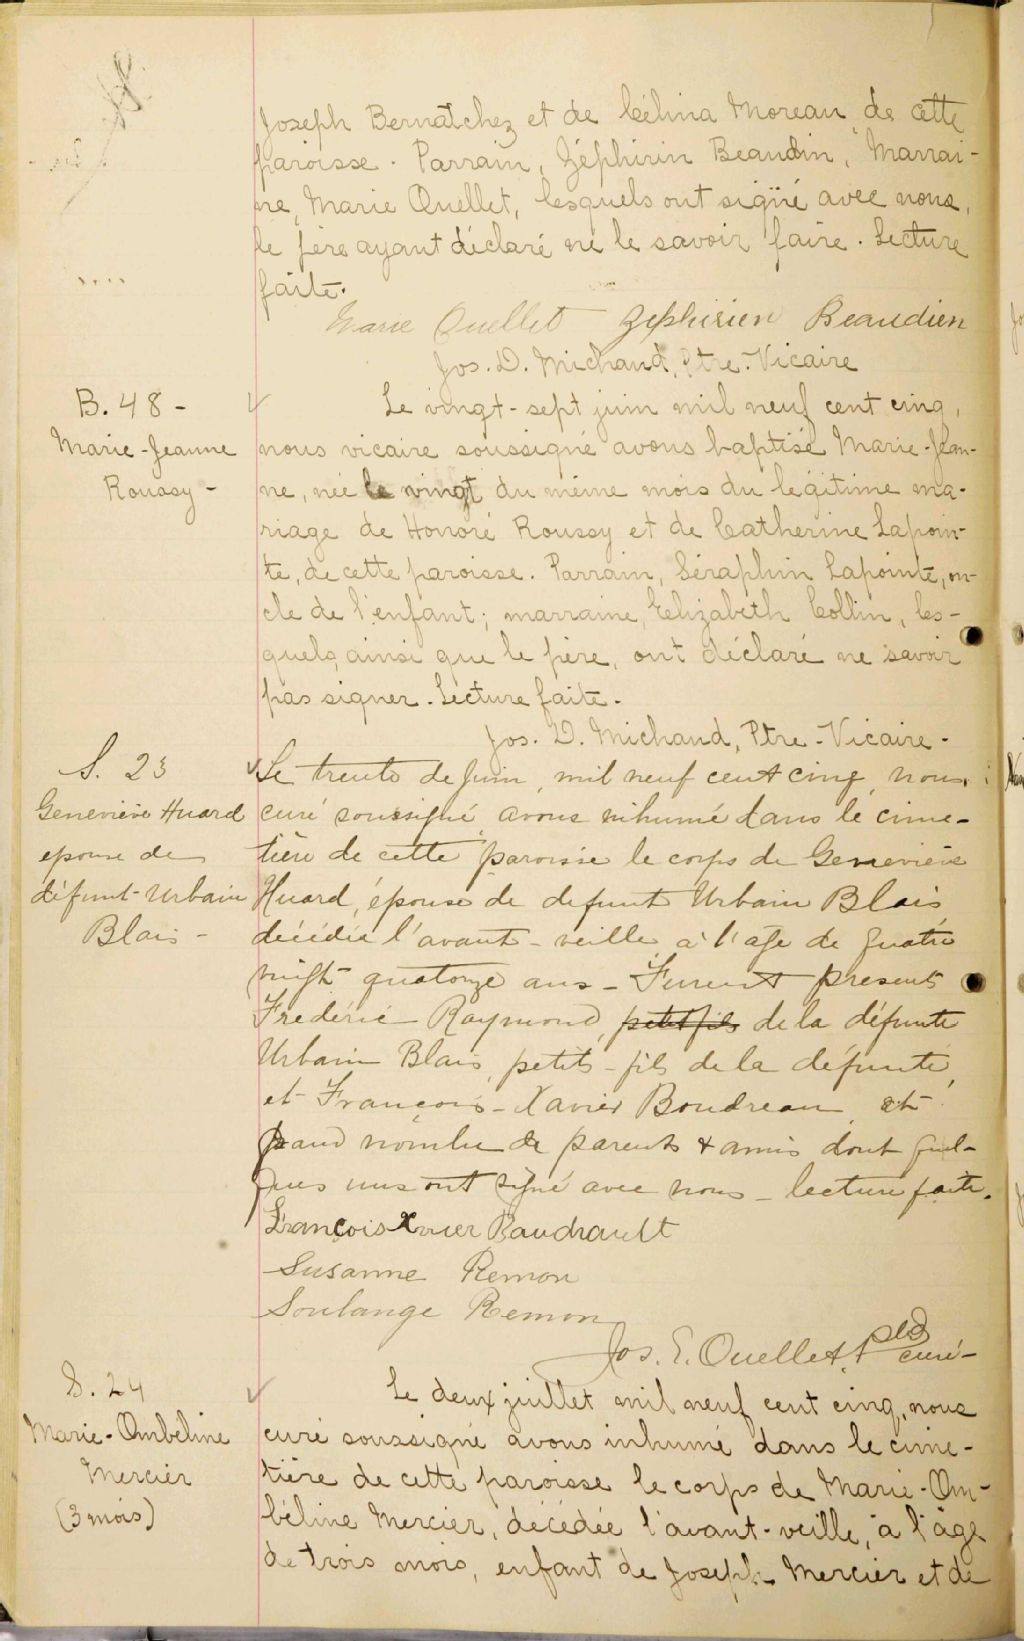 Joseph Bernatchez et de Célina Moreau de cette
paroisse. Parrain, Zéphirin Beaudin, Marrai-
ne, Marie Ouellet, lesquels ont signé avec nous,
le père ayant déclaré ne le savoir faire. Lecture
faite.
Marie Ouellet Zephirien Beaudien
Jos. D. Michaud, Ptre-Vicaire
B. 48 -
Marie-Jeanne
Roussy -
Le vingt-sept juin mil neuf cent cinq,
nous vicaire soussigné avons baptisé Marie-Jean-
ne, née le vingt du même mois du légitime ma-
riage de Honoré Roussy et de Catherine Lapoin-
te, de cette paroisse. Parrain, Séraphin Lapointe, on-
cle de l'enfant; marraine, Elizabeth Collin, les-
quels, ainsi que le père, ont déclaré ne savoir
pas signer. Lecture faite.
Jos. D. Michaud, Ptre-Vicaire-
S. 23
Geneviève Huard
épouse de
défunt Urbain
Blais -
Le trente de Juin, mil neuf cent cinq, nous
curé soussigné, avons inhumé dans le cime-
tière de cette paroisse le corps de Geneviève
Huard, épouse de defunt Urbain Blais,
décédée l'avant-veille à l'age de quatre
vingt quatorze ans - Furent présents
Frédéric Raymond, petit fils de la défunte
Urbain Blais, petits-fils de la défunte,
et François-Xavier Boudreau et
grand nombre de parents & amis dont quel-
ques uns ont signé avec nous - lecture faite.
François Xvier Baudrault
Susanne Remon
Soulange Remon
Jos. E. Ouellet, Ptre
curé-
S. 24
Marie-Ombéline
Mercier
(3 mois)
Le deux juillet mil neuf cent cinq, nous
curé soussigné avons inhumé dans le cime-
tière de cette paroisse le corps de Marie-Om-
béline Mercier, décédée l'avant-veille, à l'âge
de trois mois, enfant de Joseph Mercier et de